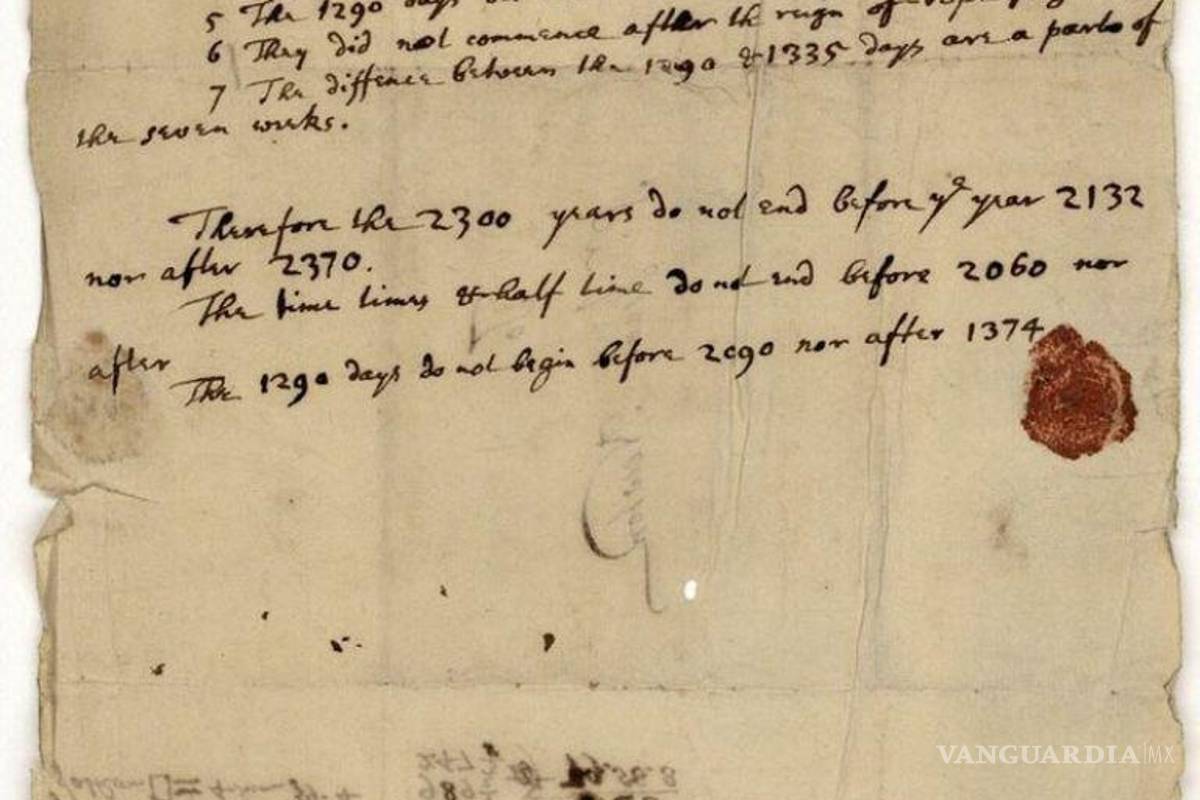 5 The 1290 days
6 They did not commence after the reign of
7 The diffence between the 1290 & 1335 days are a parts of
the seven weeks.
Therefore the 2300 years do not end before yᵉ year 2132
nor after 2370.
The time times & half time do not end before 2060 nor
after
The 1290 days do not begin before 2090 nor after 1374
VANGUARDIA|MX